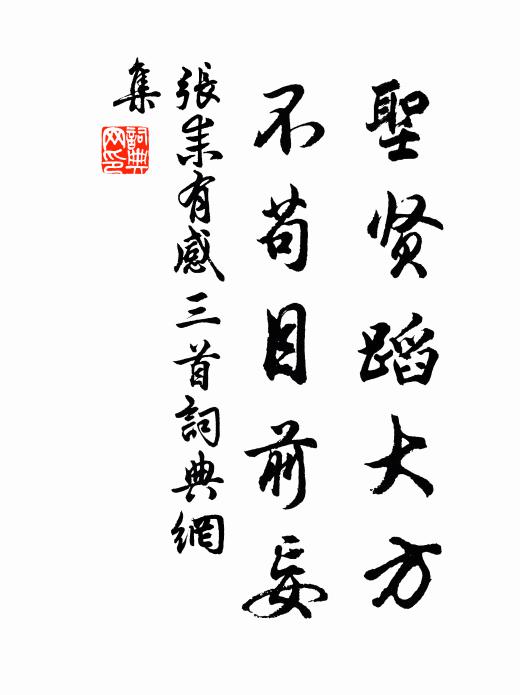 聖贤蹈大方
不苟目前妥
張耒有感三首詞典網
集
詞典
网印